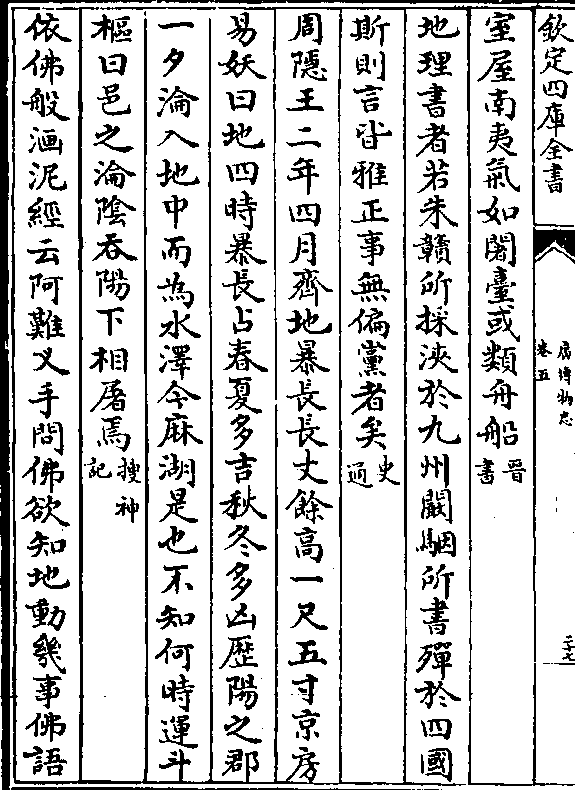 欽定四庫全書
廣博物志
卷五
二十七
室屋南夷氣如闍臺或類舟船晉書
地理書者若朱贛所採浹於九州闞駰所書殫於四國
斯則言皆雅正事無偏黨者矣史通
周隱王二年四月齊地暴長長丈餘高一尺五寸京房
易妖曰地四時暴長占春夏多吉秋冬多凶歷陽之郡
一夕淪入地中而為水澤今麻湖是也不知何時運斗
樞曰邑之淪陰吞陽下相屠焉搜神記
依佛般洍泥經云阿難叉手問佛欲知地動幾事佛語